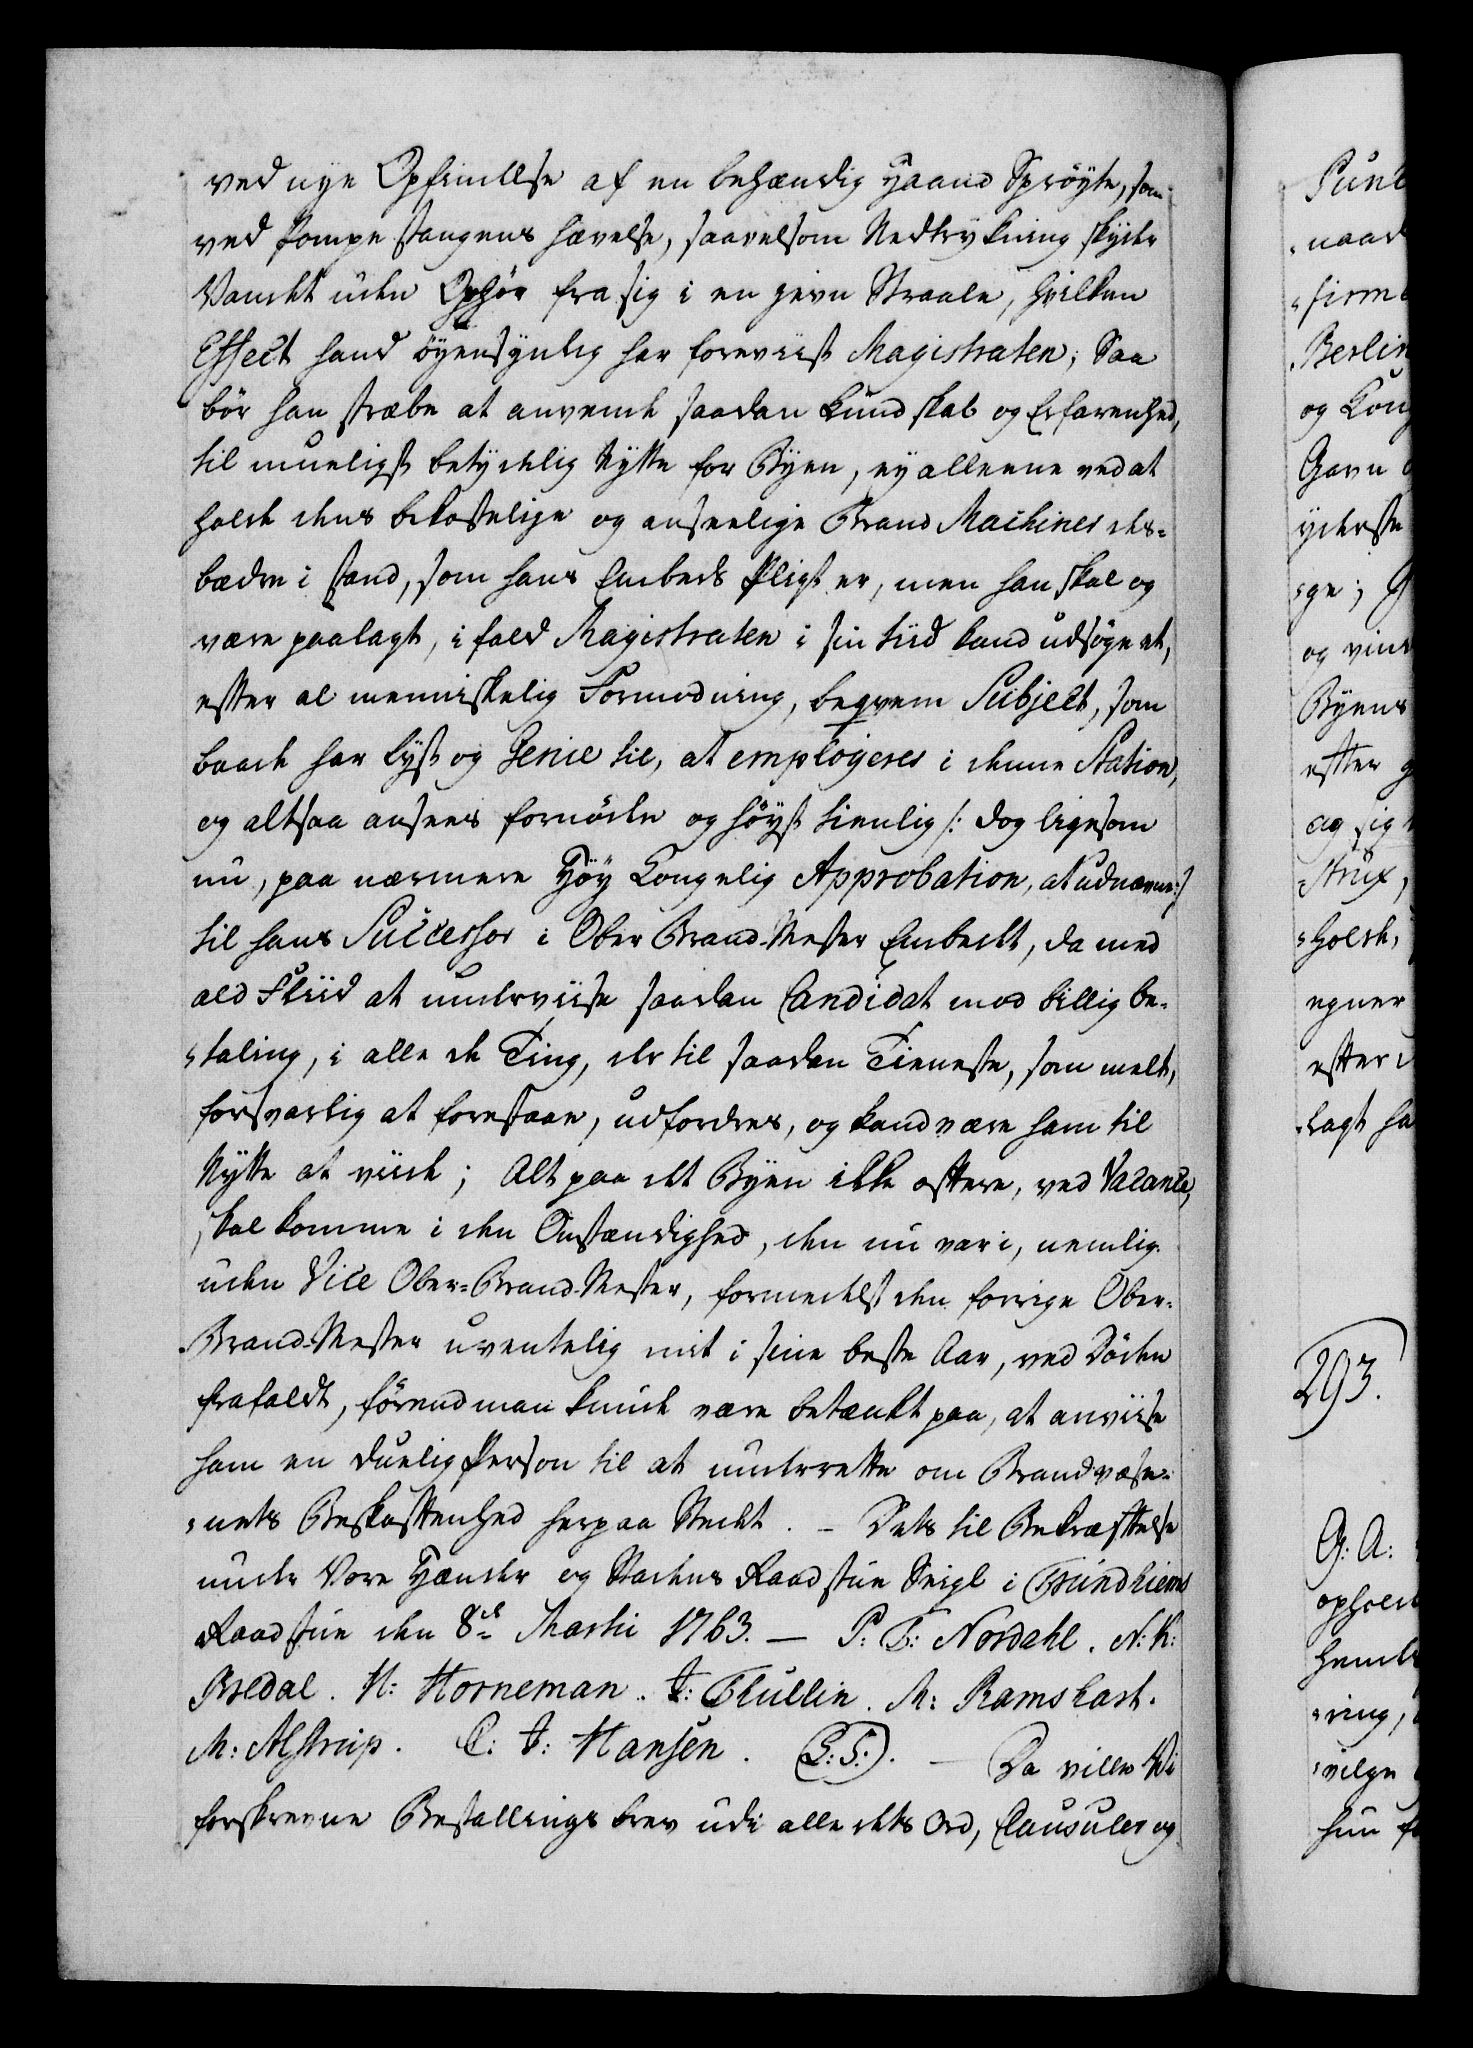 ved nye Opfindelse af en behændig Haand Sprøyte, som
ved Pompe stangens hævelse, saavelsom Nedtrykning skyder
Vandet uden Ophør fra sig i en jevn Straale, hvilken
Effect hand øyensynlig har foreviist Magistraten; Saa
bør han stræbe at anvende saadan Kundskab og Erfarenhed,
til mueligst betydelig Nytte for Byen, ey alleene ved at
holde dens bekostelige og anseelige Brand Machiner des-
bædre i stand, som hans Embeds Pligt er, men han skal og
være paalagt, i fald Magistraten i sin tiid kand udsøge et,
efter al menniskelig Formodning, beqvem Subject, som
baade har Lyst og Genie til, at employeres i denne Station,
og altsaa ansees fornøden og høyst tienlig /: dog ligesom
nu, paa nærmere Høy Kongelig Approbation, at udnævne :/
til hans Successor i Ober Brand-Mester Embedet, da med
ald Fliid at underviise saadan Candidat mod billig be-
taling, i alle de Ting, der til saadan Tieneste, som meldt,
forsvarlig at forestaae, udfordres, og kand være ham til
Nytte at viide; Alt paa det Byen ikke oftere, ved Vacance,
skal komme i den Omstændighed, den nu var i, nemlig
uden Vice Ober-Brand-Mester, formedelst den forrige Ober-
Brand-Mester uventelig mit i sine beste Aar, ved Døden
frafaldt, førend man kunde være betænkt paa, at anviise
ham en duelig Person til at underrette om Brandvæse-
nets Beskaffenhed her paa Stedet. - Dets til Bekræftelse
under Vore Hænder og Stadens Raadstue Seigl i Trundhiems
Raadstue den 8de Martii 1763. — P: T: Nordahl. N: K:
Bredal. H: Horneman. J: Tullin. M: Ramshart.
M: Alstrup. C: J: Hansen. (L: S:). — Da ville Vi
forskrevne Bestallings brev udi alle dets Ord, Clausuler og
293.
G: A: